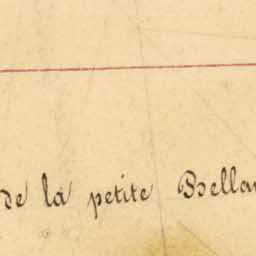 de la petite Bella